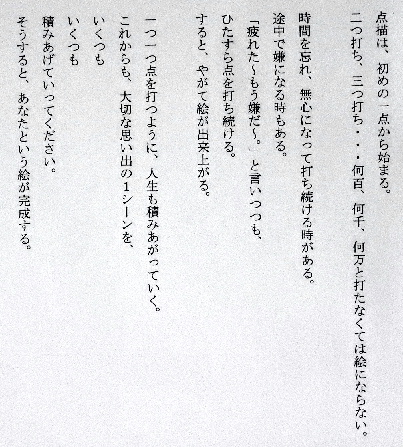 点描は、初めの一点から始まる。
二つ打ち、三つ打ち・・・何百、何千、何万と打たなくては絵にならない。
時間を忘れ、無心になって打ち続ける時がある。
途中で嫌になる時もある。
「疲れた～もう嫌だ～。」と言いつつも、
ひたすら点を打ち続ける。
すると、やがて絵が出来上がる。
一つ一つ点を打つように、人生も積みあがっていく。
これからも、大切な思い出の１シーンを、
いくつも
いくつも
積みあげていってください。
そうすると、あなたという絵が完成する。